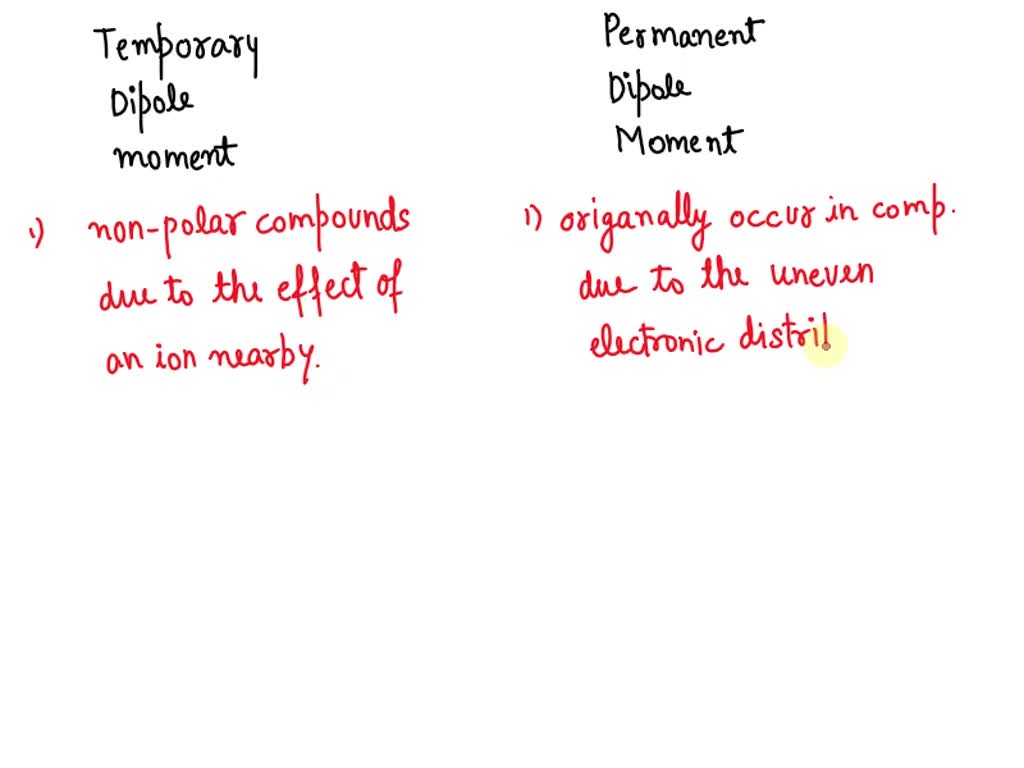 Temporary
Dipole
moment
1) non-polar compounds
due to the effect of
an ion nearby.
Permanent
Dipole
Moment
1) origanally occur in comp.
due to the uneven
electronic distrib